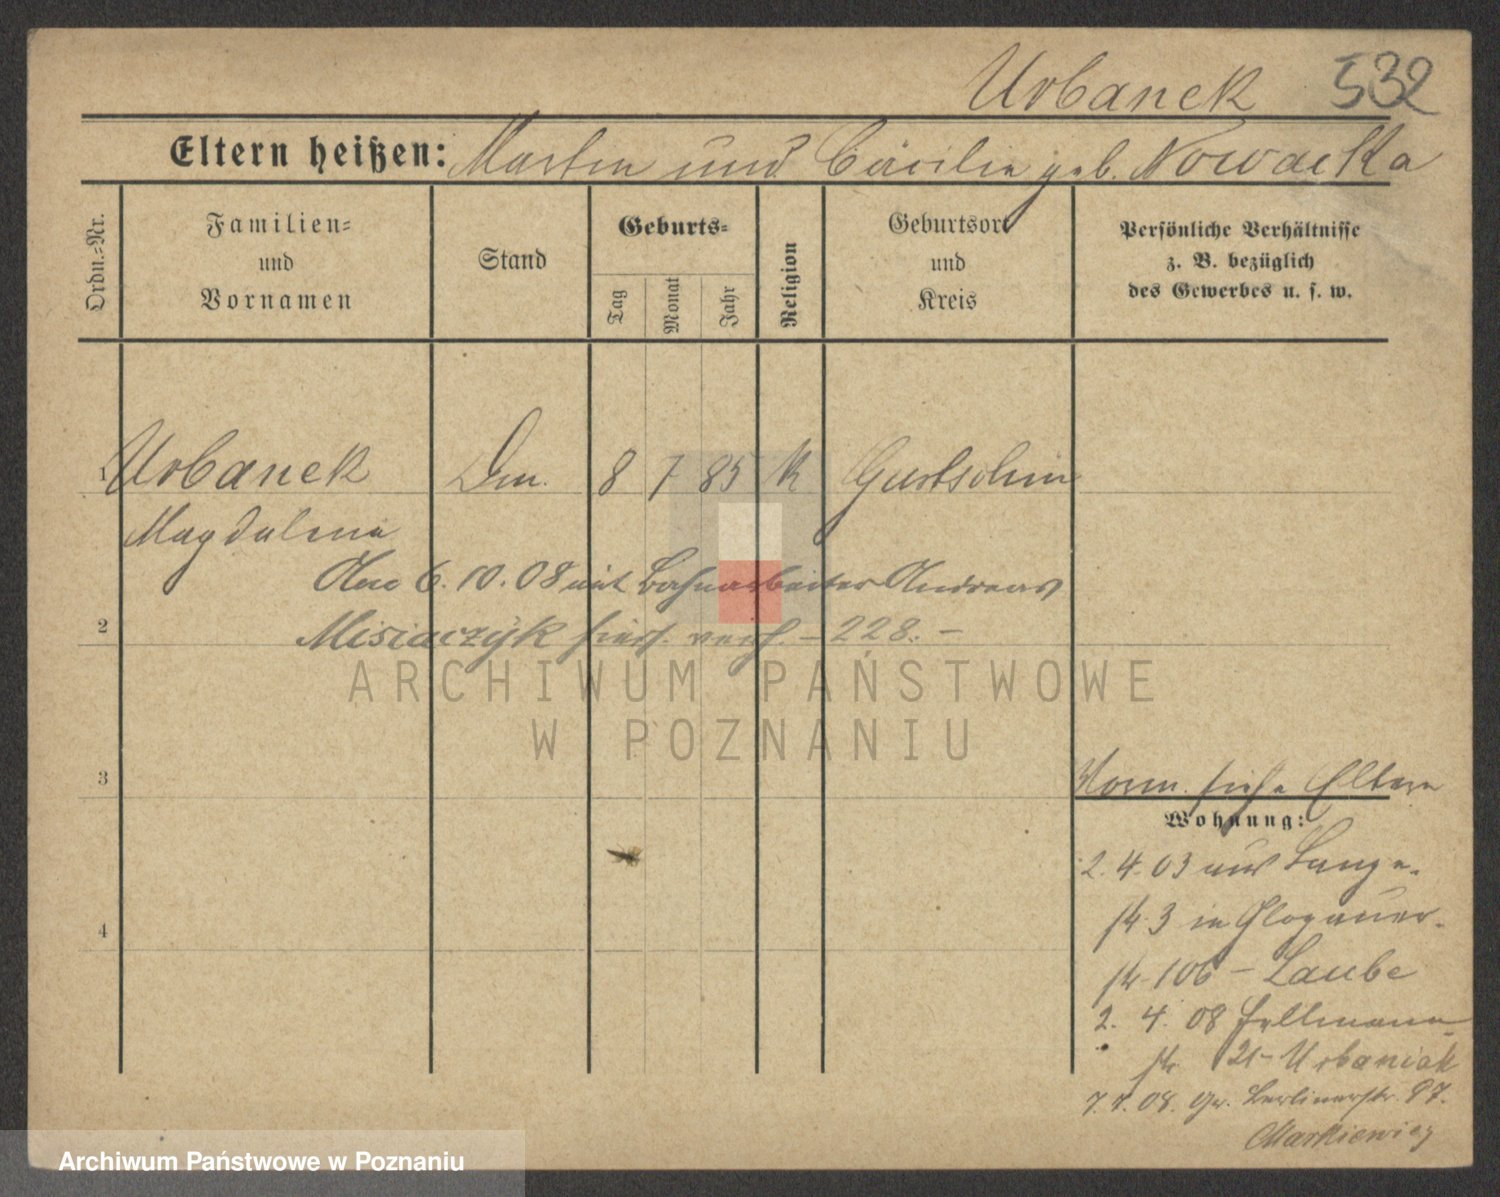 Urbanek 532
Eltern heißen: Martin und Cäcilie geb. Nowacka
Ordn.-Nr.
Familien- und Vornamen
Stand
Geburts-
Tag
Monat
Jahr
Religion
Geburtsort und Kreis
Persönliche Verhältnisse z. B. bezüglich des Gewerbes u. s. w.
1 Urbanek Dm. 8 7 85 K Gurtschin
Magdalena
Am 6.10.08 mit Bahnarbeiter Andreas
2 Misiaczyk hier verh. – 228. –
ARCHIWUM PAŃSTWOWE
W POZNANIU
3
Vorm. siehe Eltern
Wohnung:
2.4.03 aus Lange-
str 3 in Glogauer-
4
str. 106 – Laube
2. 4. 08 Hellmann
str 21 – Urbaniak
7.7.08. Gr. Berlinerstr. 97.
Markiewicz
Archiwum Państwowe w Poznaniu